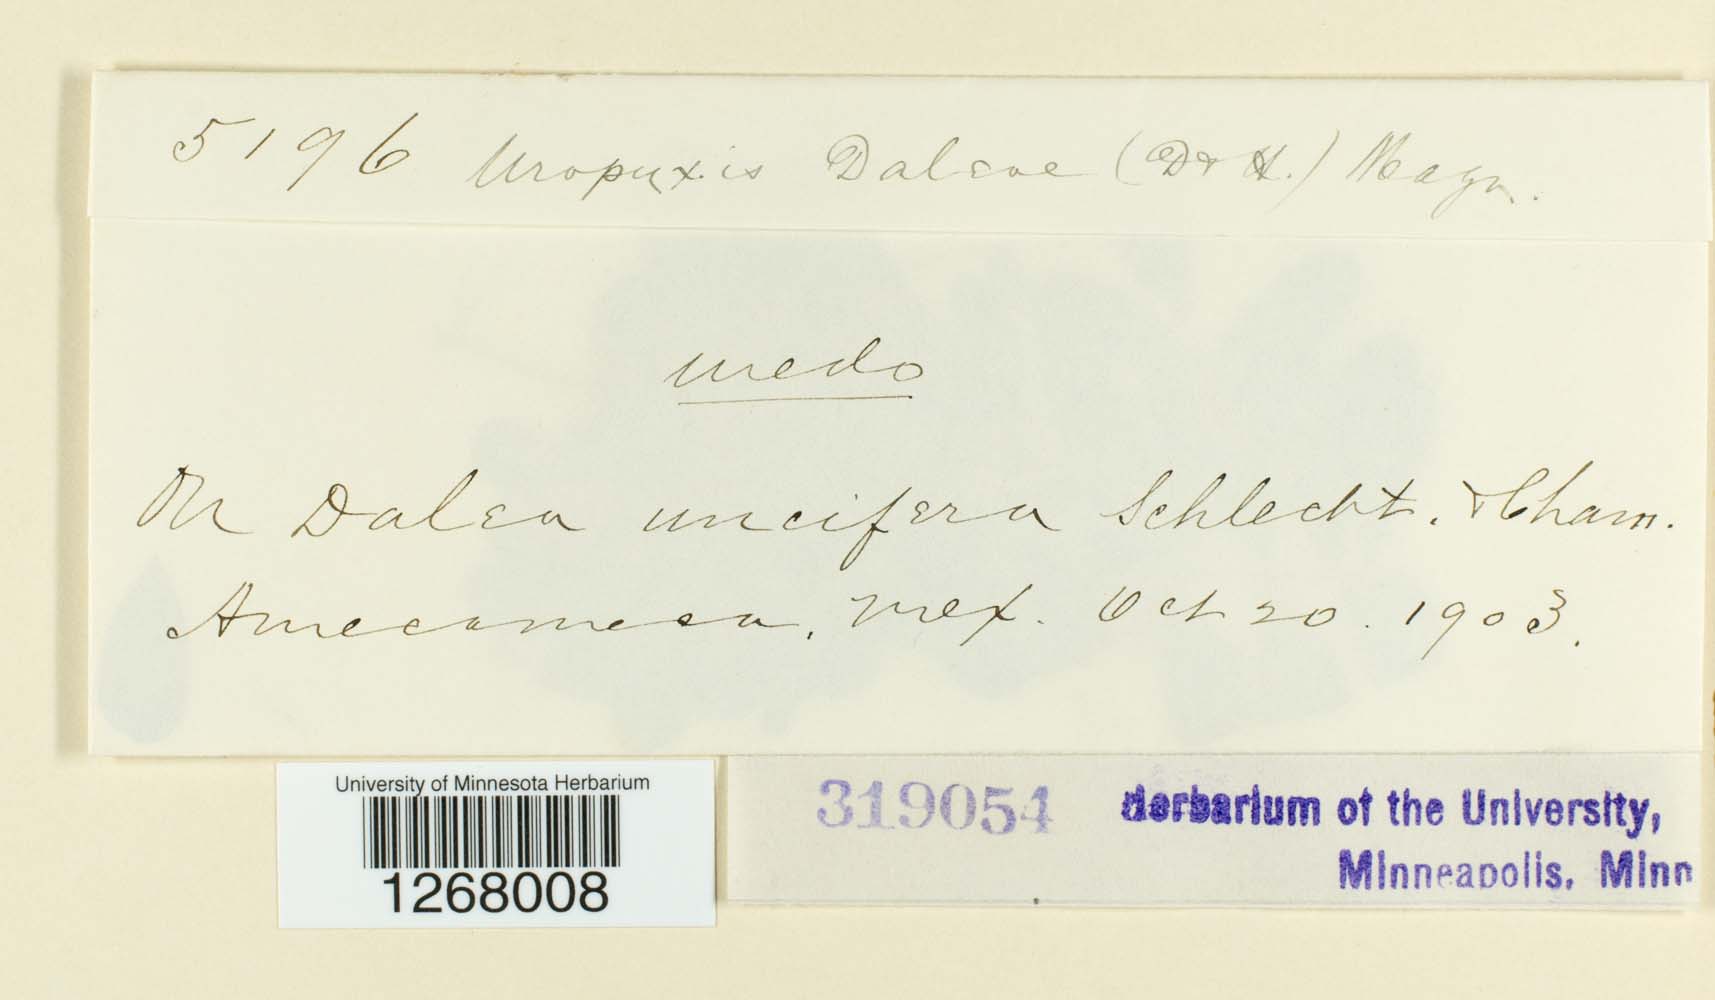 5196 Uropyxis Daleae (D & H.) Magn.
uredo
On Dalea uncifera Schlecht. & Cham.
Amecameca, Mex. Oct 20. 1903.
University of Minnesota Herbarium
1268008
319054
Herbarium of the University,
Minneapolis, Minn